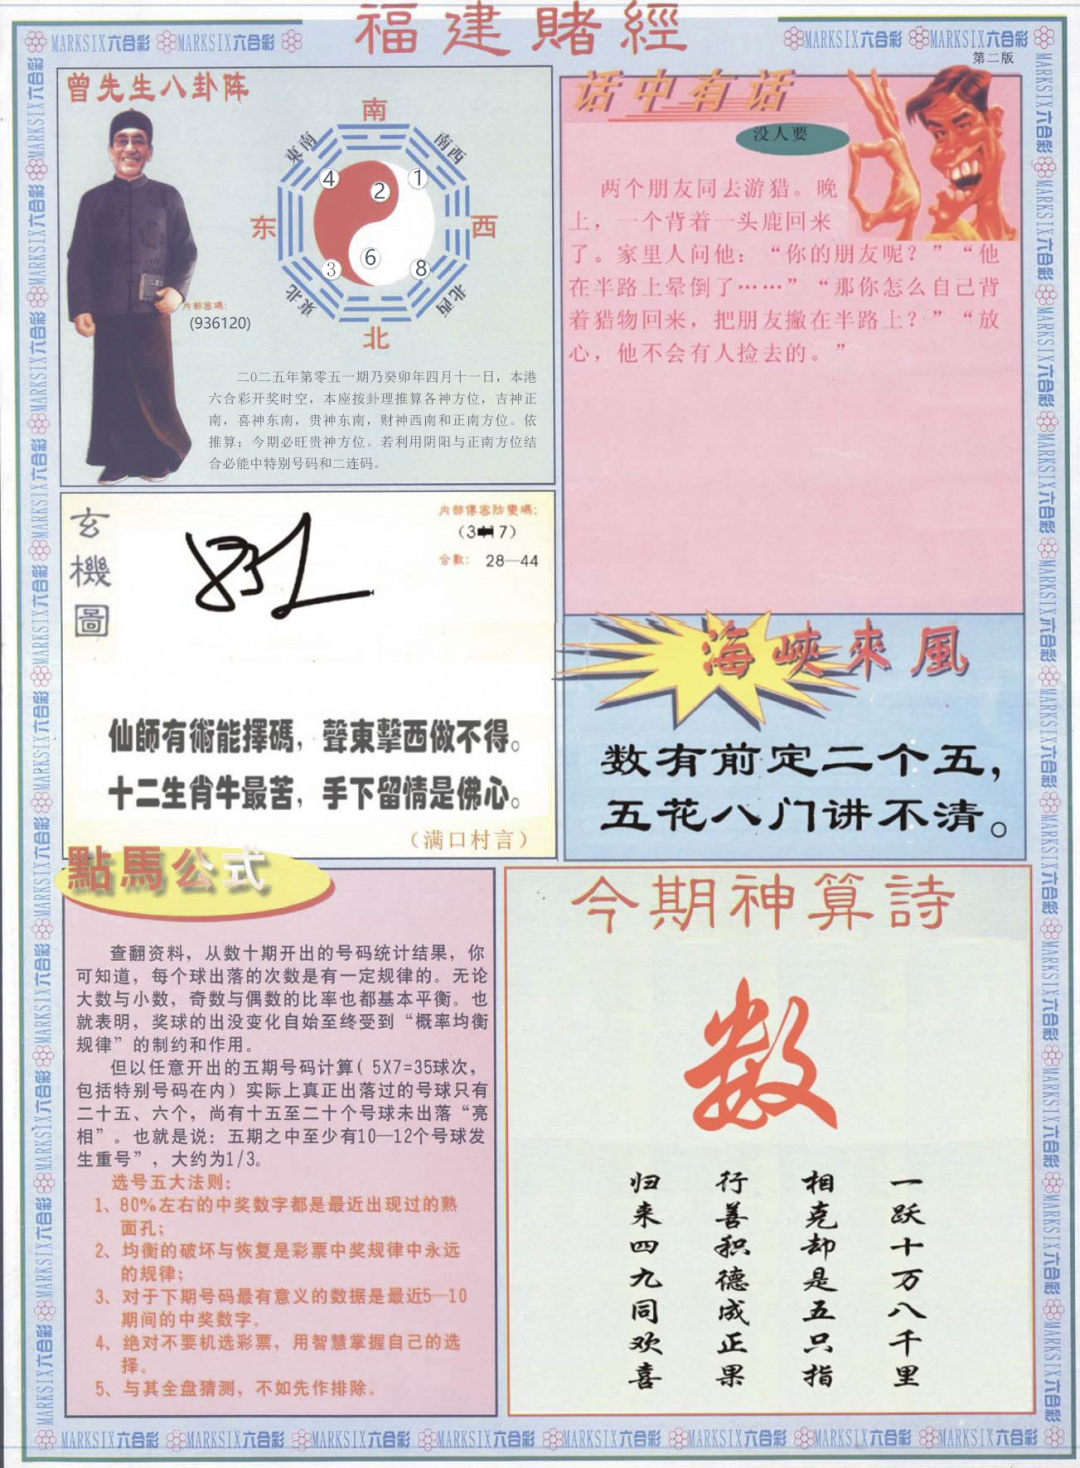 福建賭經
MARKSIX六合彩 MARKSIX六合彩
MARKSIX六合彩 MARKSIX六合彩
第二版
曾先生八卦阵
南
東南
南西
4
2
1
东
西
3
6
8
東北
北西
北
内部密碼：
(936120)
二〇二五年第零五一期乃癸卯年四月十一日，本港
六合彩开奖时空，本座按卦理推算各神方位，吉神正
南，喜神东南，贵神东南，财神西南和正南方位。依
推算：今期必旺贵神方位。若利用阴阳与正南方位结
合必能中特别号码和二连码。
话中有话
没人要
两个朋友同去游猎。晚
上，一个背着一头鹿回来
了。家里人问他：“你的朋友呢？”“他
在半路上晕倒了……”“那你怎么自己背
着猎物回来，把朋友撇在半路上？”“放
心，他不会有人捡去的。”
玄機圖
内部傳密防變碼：
(3 17)
合數： 28—44
仙師有術能擇碼，聲東擊西做不得。
十二生肖牛最苦，手下留情是佛心。
（满口村言）
海峽來風
数有前定二个五，
五花八门讲不清。
點馬公式
查翻资料，从数十期开出的号码统计结果，你
可知道，每个球出落的次数是有一定规律的。无论
大数与小数，奇数与偶数的比率也都基本平衡。也
就表明，奖球的出没变化自始至终受到“概率均衡
规律”的制约和作用。
但以任意开出的五期号码计算( 5X7=35球次，
包括特别号码在内）实际上真正出落过的号球只有
二十五、六个，尚有十五至二十个号球未出落“亮
相”。也就是说：五期之中至少有10—12个号球发
生重号”，大约为1/3。
选号五大法则：
1、80%左右的中奖数字都是最近出现过的熟
面孔；
2、均衡的破坏与恢复是彩票中奖规律中永远
的规律；
3、对于下期号码最有意义的数据是最近5—10
期间的中奖数字。
4、绝对不要机选彩票，用智慧掌握自己的选
择。
5、与其全盘猜测，不如先作排除。
今期神算詩
数
一跃十万八千里
相克却是五只指
行善积德成正果
归来四九同欢喜
MARKSIX六合彩 MARKSIX六合彩 MARKSIX六合彩 MARKSIX六合彩 MARKSIX六合彩 MARKSIX六合彩 MARKSIX六合彩 MARKSIX六合彩